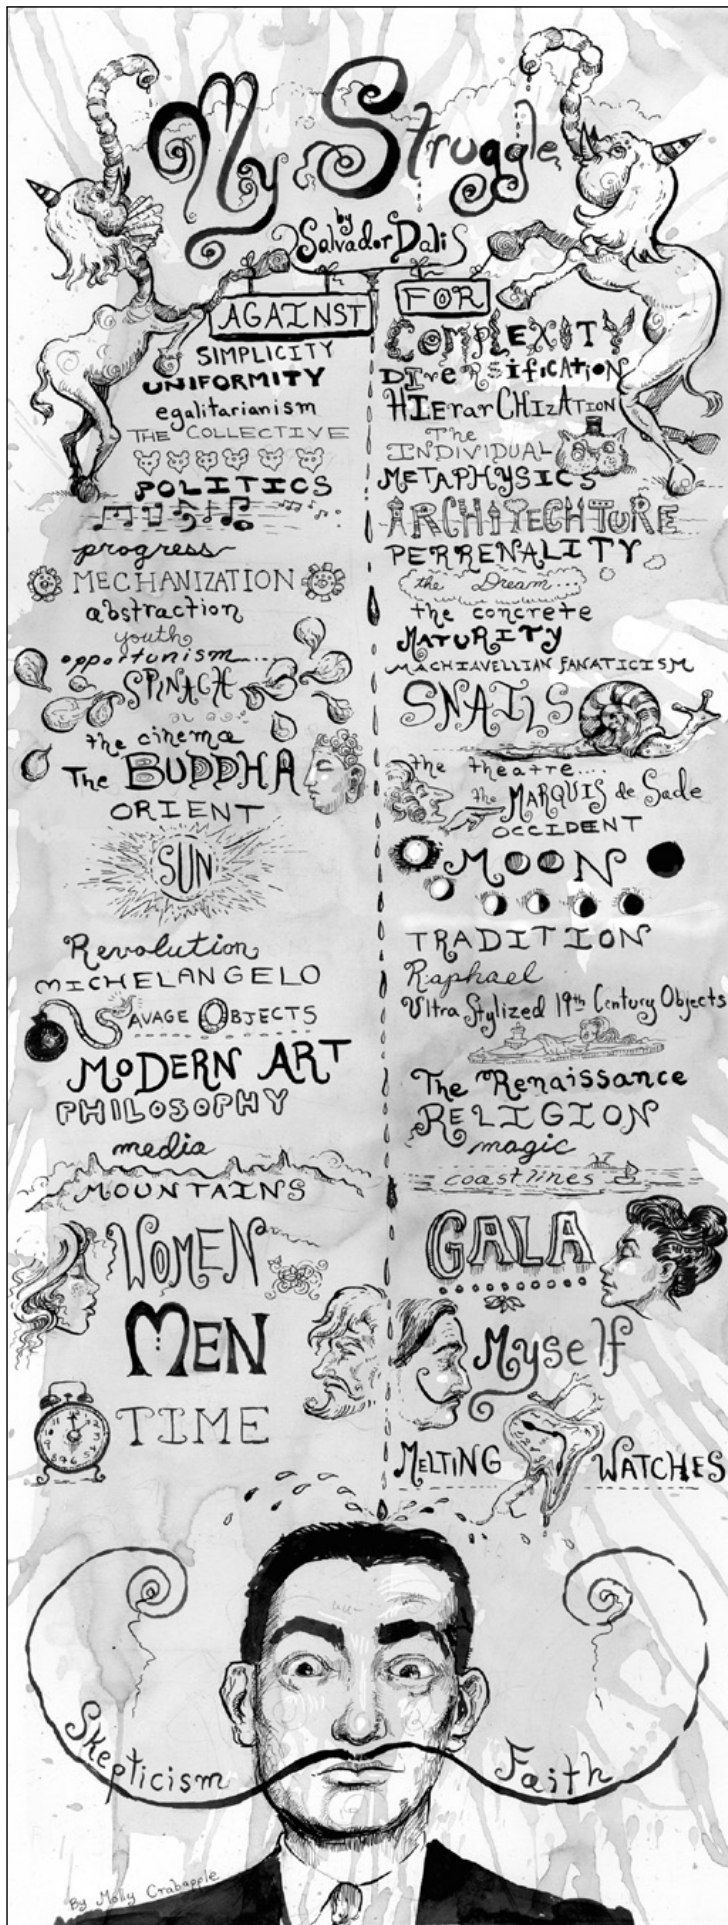 My Struggle
by
Salvador Dali
AGAINST
SIMPLICITY
UNIFORMITY
egalitarianism
THE COLLECTIVE
POLITICS
progress
MECHANIZATION
abstraction
youth
opportunism....
SPINACH
the cinema
The BUDDHA
ORIENT
SUN
Revolution
MICHELANGELO
SAVAGE OBJECTS
MODERN ART
PHILOSOPHY
media
MOUNTAINS
WOMEN
MEN
TIME
FOR
COMPLEXITY
DIversification
HIErarCHIzATION
The
INDIVIDUAL
METAPHYSICS
ARCHITECHTURE
PERRENALITY
the Dream...
the concrete
MATURITY
MACHIAVELLIAN FANATICISM
SNAILS
the theatre....
the MARQUIS de Sade
OCCIDENT
MOON
TRADITION
Raphael
Ultra Stylized 19th Century Objects
The Renaissance
RELIGION
magic
coastlines
GALA
Myself
MELTING WATCHES
Skepticism
Faith
By Molly Crabapple